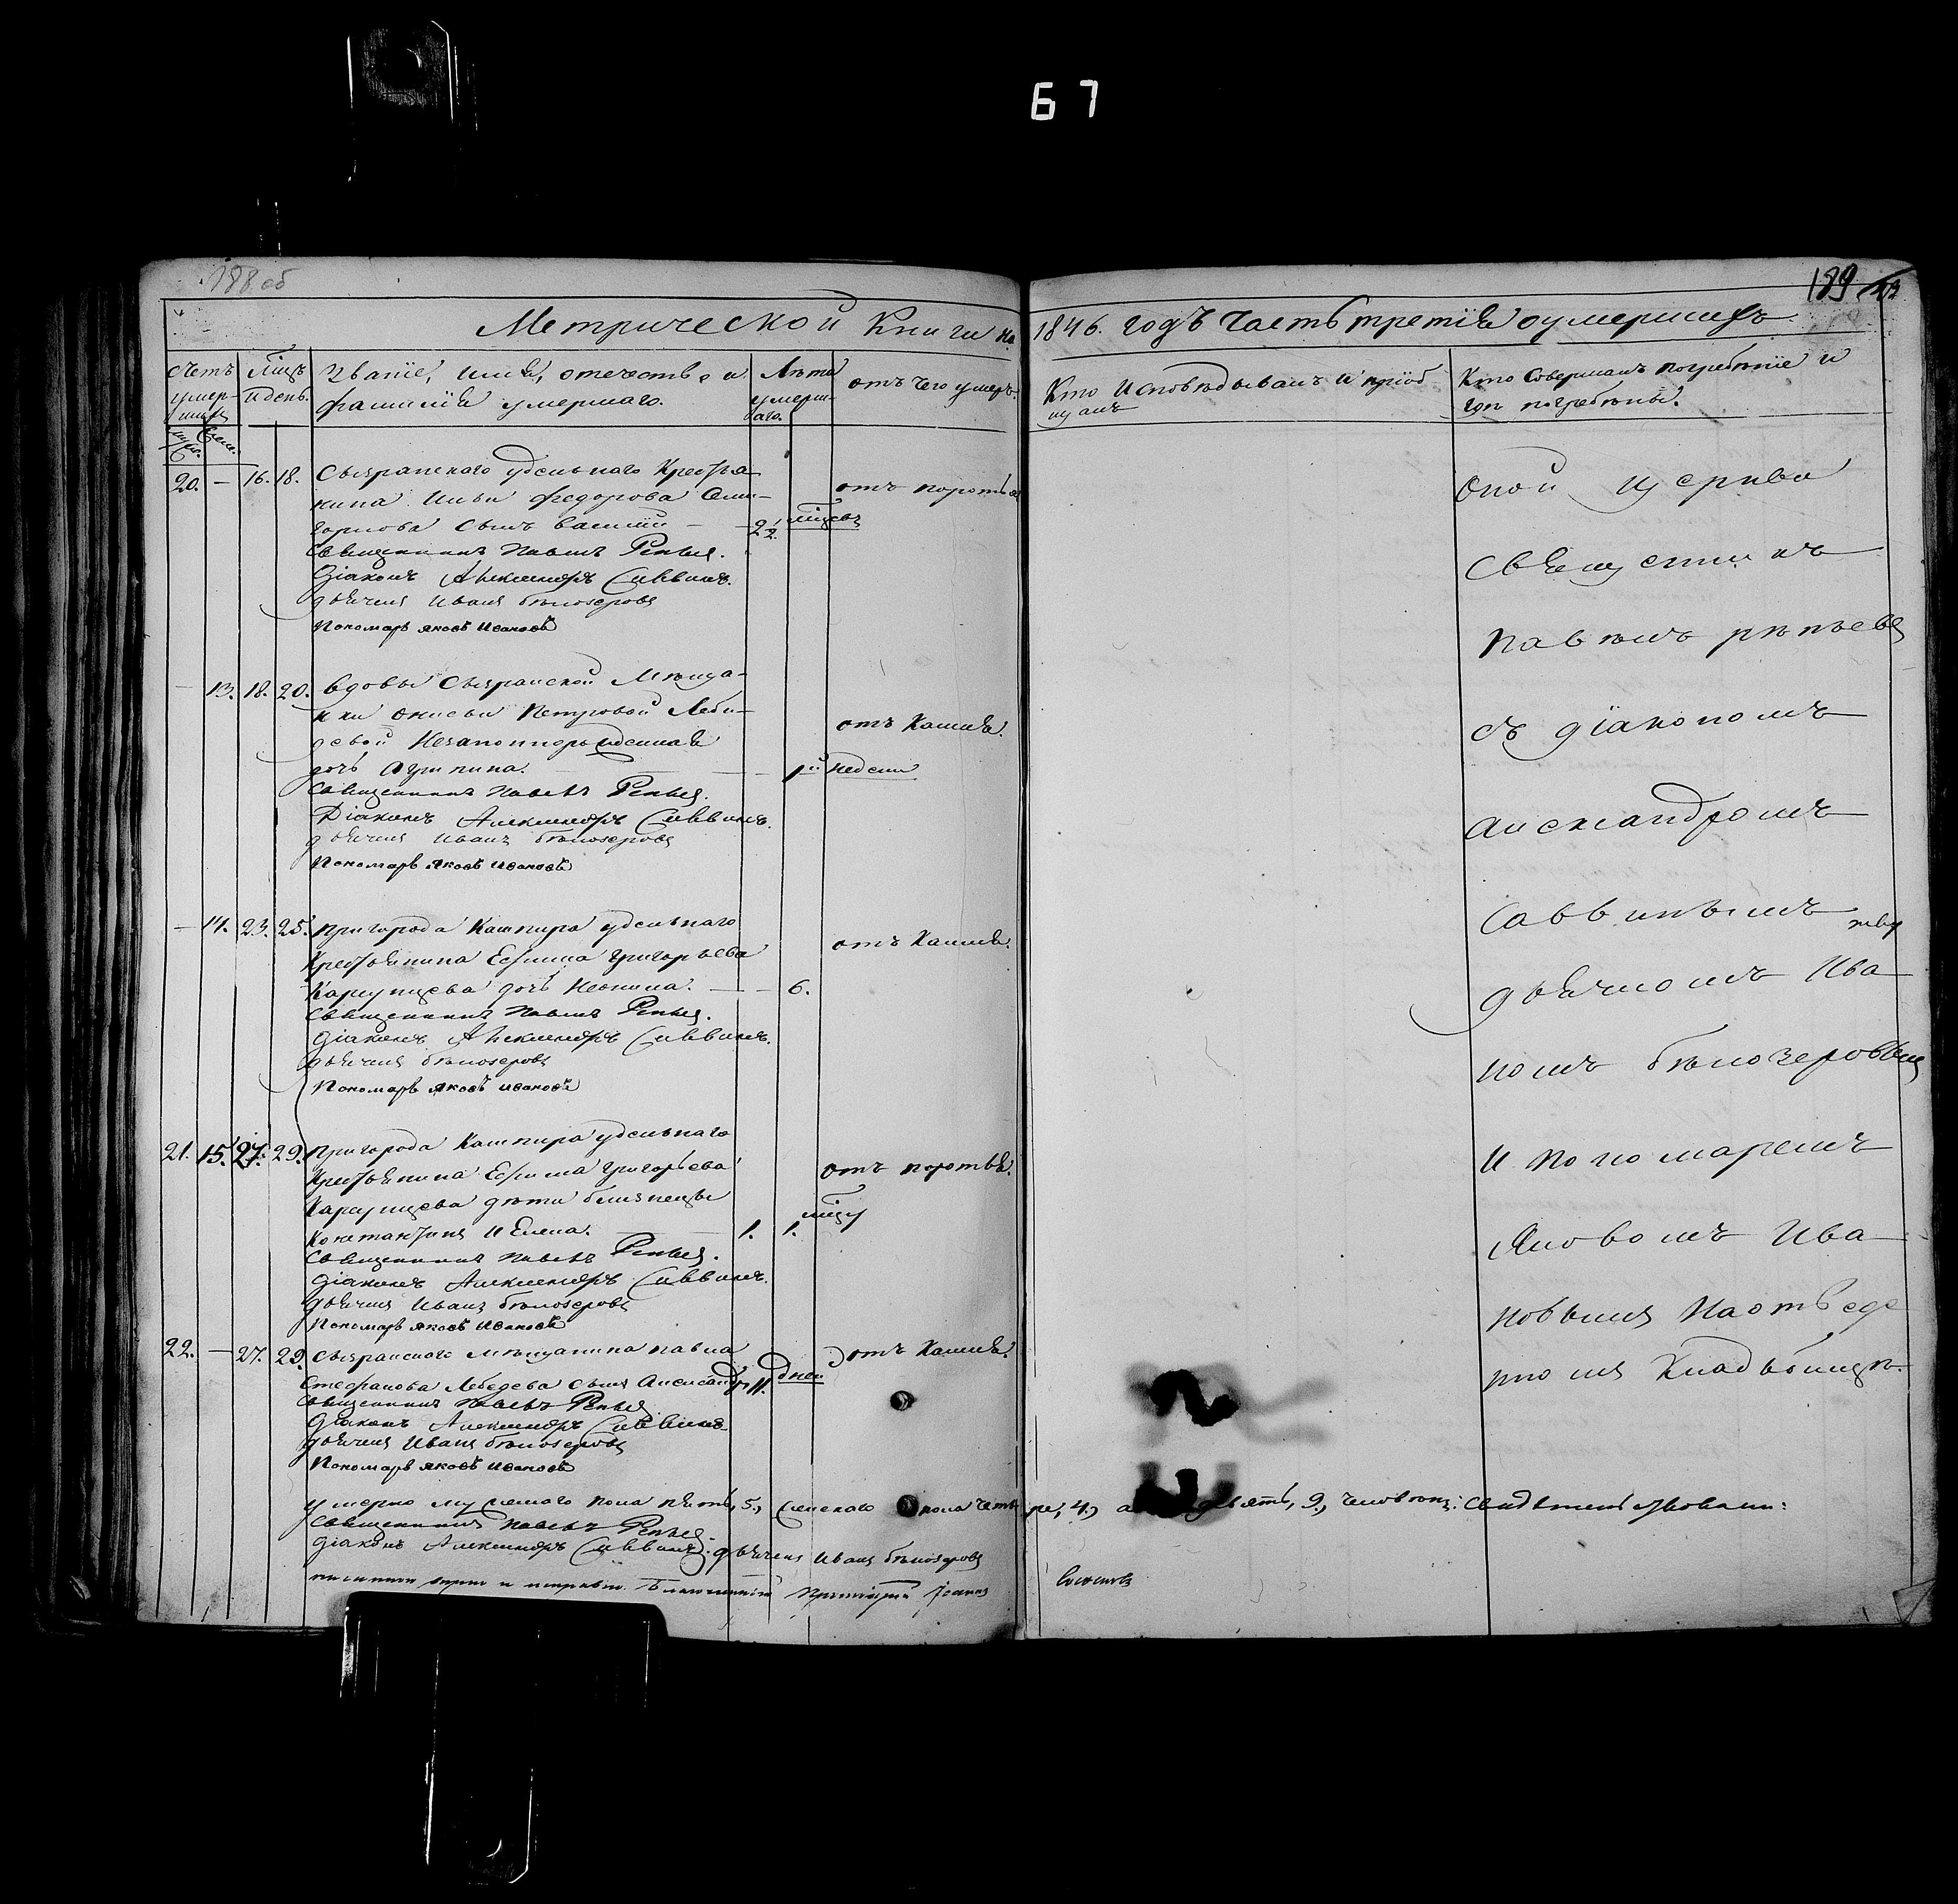 67
188 об
189
Метрической Книги на 1846. годъ часть третія о умершихъ
Счетъ умершихъ
Муж. Жен.
Мѣсц. и день.
Званіе, имя, отечество и фамилія умершаго.
Лѣта умершаго.
отъ чего умеръ.
Кто Исповѣдывалъ и пріобщалъ
Кто Совершалъ погребеніе и гдѣ погребены.
20. — 16. 18. Сызранскаго удѣльнаго Крестья-
нина Ильи Федорова
сынъ Василій — 2 1/2 мѣсцевъ
отъ поротья
Священникъ Павелъ Репьев.
Діаконъ Александръ Саввинъ.
дьячекъ Иванъ Бѣлозеровъ
Пономарь Яковъ Ивановъ
— 13. 18. 20. Вдовы Сызранской Мѣща-
нки Анисьи Петровой Лебе-
девой Незаконнорожденная
дочь Агрипина. — 1й недели
отъ Кашля.
Священникъ Павелъ Репьев.
Діаконъ Александръ Саввинъ.
дьячекъ Иванъ Бѣлозеровъ
Пономарь Яковъ Ивановъ
— 14. 23. 25. Пригорода Кашпира удѣльнаго
Крестьянина Ефима Григорьева
Карпунцева дочь Неонила. — 6.
отъ Кашля.
Священникъ Павелъ Репьев.
Діаконъ Александръ Саввинъ.
дьячекъ Бѣлозеровъ
Пономарь Яковъ Ивановъ
21. 15. 27. 29. Пригорода Кашпира удѣльнаго
Крестьянина Ефима Григорьева
Карпунцева дѣти близнецы
Константинъ и Елена. — 1. 1. мѣсцу
отъ поротья.
Священникъ Павелъ Репьев.
Діаконъ Александръ Саввинъ.
дьячекъ Иванъ Бѣлозеровъ
Пономарь Яковъ Ивановъ
22. — 27. 29. Сызранскаго мѣщанина Павла
Стефанова Лебедева сынъ Александръ 11. дней
отъ Кашля.
Священникъ Павелъ Репьев.
Діаконъ Александръ Саввинъ
дьячекъ Иванъ Бѣлозеровъ
Пономарь Яковъ Ивановъ
Оной церкви
Священникъ
Павелъ Рѣпьевъ
съ діакономъ
Александромъ
Саввинымъ
дьячкомъ Ива
номъ Бѣлозеровым
и пономаремъ
Яковомъ Ива
новымъ на отведе
нномъ Кладбищѣ.
умерло мужескаго пола пять, 5., женскаго пола четыре, 4., а девять, 9., человѣкъ: свидѣтельствовали:
Священникъ Павелъ Репьев
Діаконъ Александръ Саввинъ. дьячекъ Иванъ Бѣлозеровъ
писанно вѣрно и исправно. Благочинный Протоіерей Іоаннъ